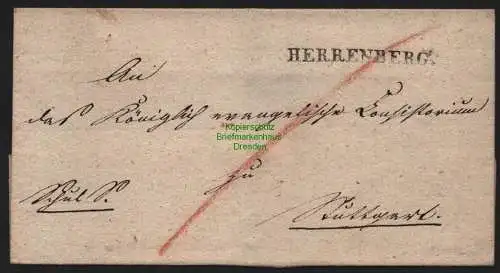 HERRENBERG.
An
das Königlich evangelische Consistorium
Kopierschutz
Briefmarkenhaus
Dresden
zu
Schul S.
Stuttgart.